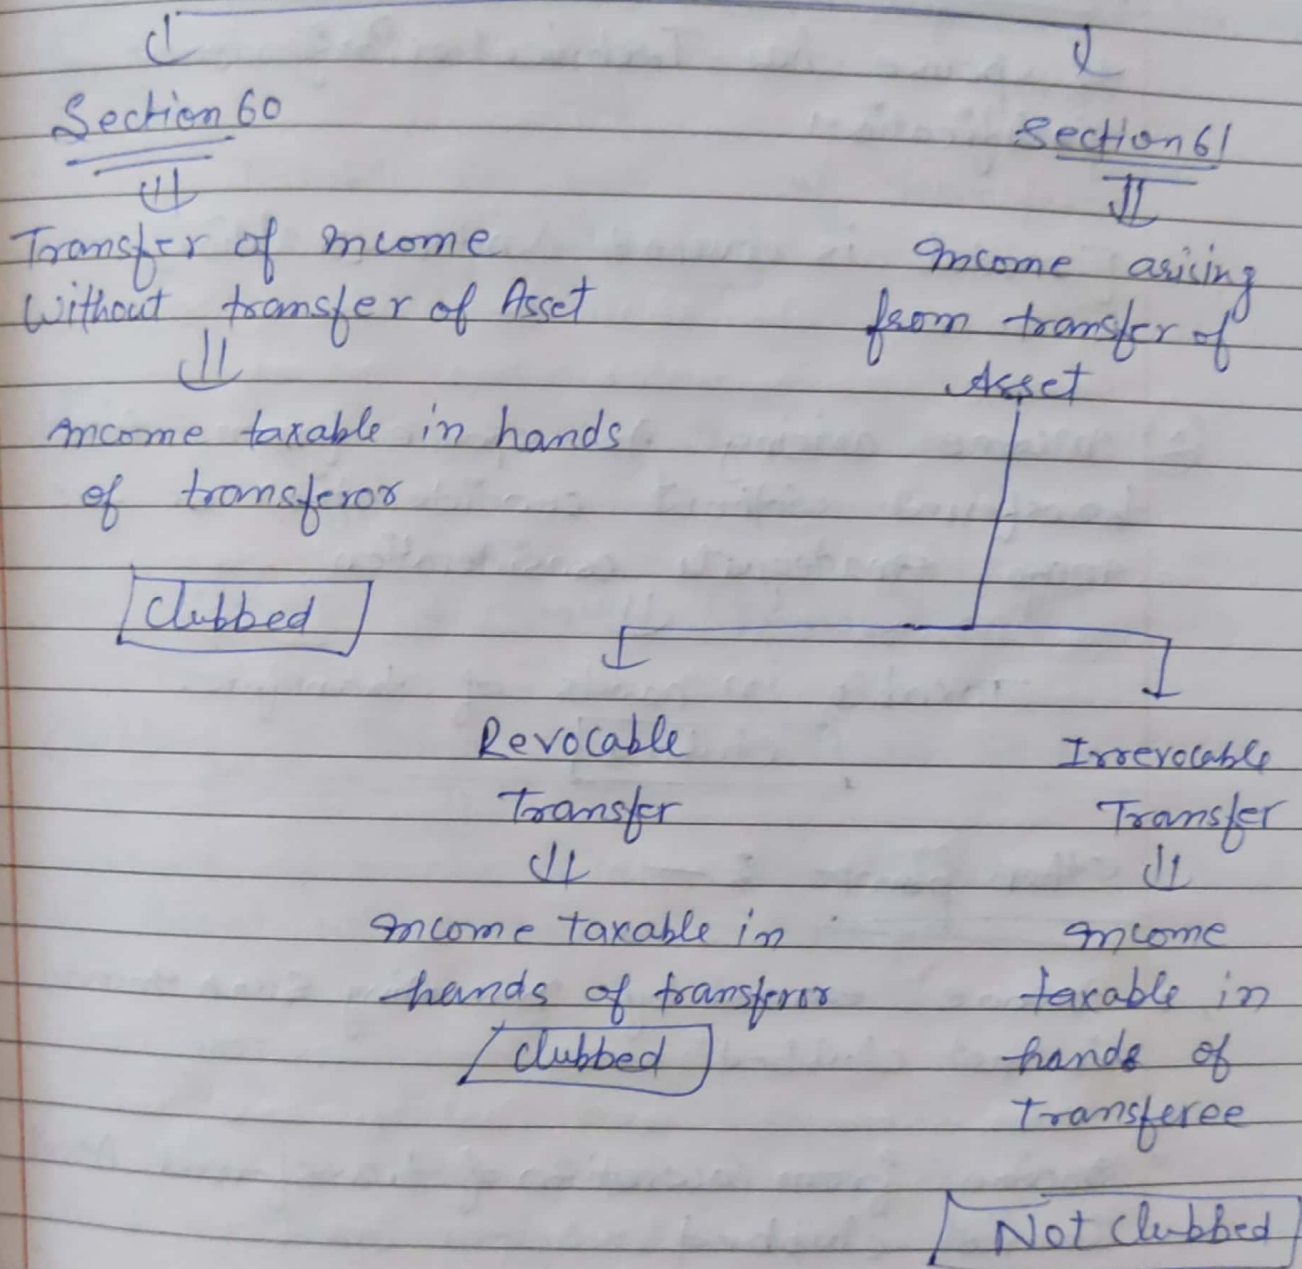 Section 60
Transfer of Income
Without transfer of Asset
Income taxable in hands
of transferor
Clubbed
Section 61
Income arising
from transfer of
Asset
Revocable
Transfer
Income taxable in
hands of transferor
Clubbed
Irrevocable
Transfer
Income
taxable in
hands of
Transferee
Not Clubbed